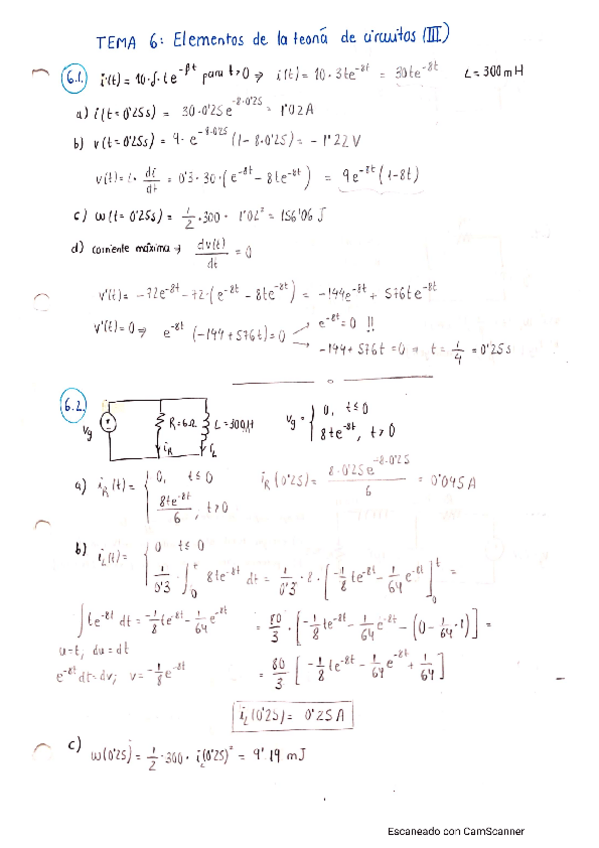 TEMA 6: Elementos de la teoría de circuitos (III)
6.1. i(t) = 10·δ·t e^-βt para t>0 ⇒ i(t) = 10·3te^-8t = 30te^-8t L=300mH
a) i(t=0'25s) = 30·0'25e^-8·0'25 = 1'02A
b) v(t=0'25s) = 9·e^-8·0'25 (1-8·0'25) = -1'22V
v(t)= L· di/dt = 0'3·30·(e^-8t - 8te^-8t) = 9e^-8t(1-8t)
c) ω(t=0'25s) = 1/2·300· 1'02² = 156'06 J
d) corriente máxima → dv(t)/dt = 0
v'(t)= -72e^-8t -72·(e^-8t - 8te^-8t) = -144e^-8t + 576te^-8t
v'(t)=0 ⇒ e^-8t (-144+576t)=0 → e^-8t=0 !!
→ -144+576t=0 ⇒ t= 1/4 =0'25s
6.2. vg R=6Ω L=300H iR iL vg = { 0, t≤0
8te^-8t, t>0
a) iR(t)= { 0, t≤0
8te^-8t/6, t>0
iR(0'25)= 8·0'25e^-8·0'25/6 = 0'045A
b) iL(t)= { 0 t≤0
1/0'3 · ∫₀^t 8te^-8t dt = 1/0'3 · 8 · [-1/8 te^-8t - 1/64 e^-8t]₀^t =
∫te^-8t dt = -1/8 te^-8t - 1/64 e^-8t = 80/3 · [-1/8 te^-8t - 1/64 e^-8t - (0 - 1/64·1)] =
u=t, du=dt
e^-8t dt=dv; v=-1/8 e^-8t = 80/3 [-1/8 te^-8t - 1/64 e^-8t + 1/64]
iL(0'25)= 0'25A
c) ω(0'25)= 1/2·300· iL(0'25)² = 9'19 mJ
Escaneado con CamScanner